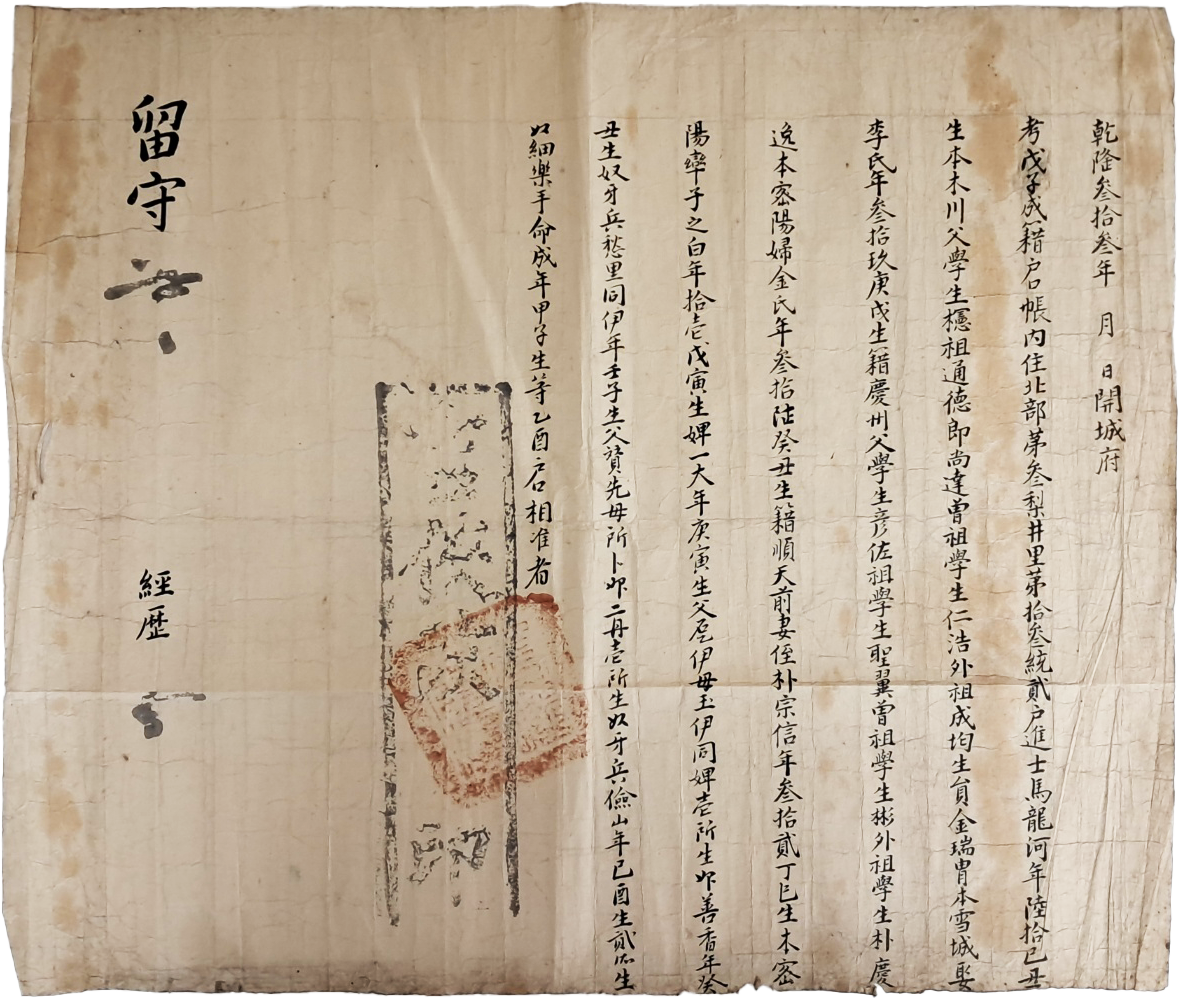 乾隆叁拾叁年 月 日開城府
考戊子成籍户帳内住北部苐叁梨井里苐拾叁統貳户進士馬龍河年陸拾己丑
生本木川父學生櫶祖通德郎尚達曾祖學生仁浩外祖成均生員金瑞胄本雪城娶
李氏年叁拾玖庚戌生籍慶州父學生彦佐祖學生聖翼曾祖學生彬外祖學生朴慶
逸本密陽婦金氏年叁拾陸癸丑生籍順天前妻侄朴宗信年叁拾貳丁巳生本密
陽率子之白年拾壹戊寅生婢一大年庚寅生父 伊母玉伊同婢壹所生婢善香年癸
丑生奴牙兵愁里同伊年壬子生父贊先母所卜婢二丹壹所生奴牙兵儉山年己酉生貳所生
奴細樂手命成年甲子生等乙酉户口相准者
留守
經歷